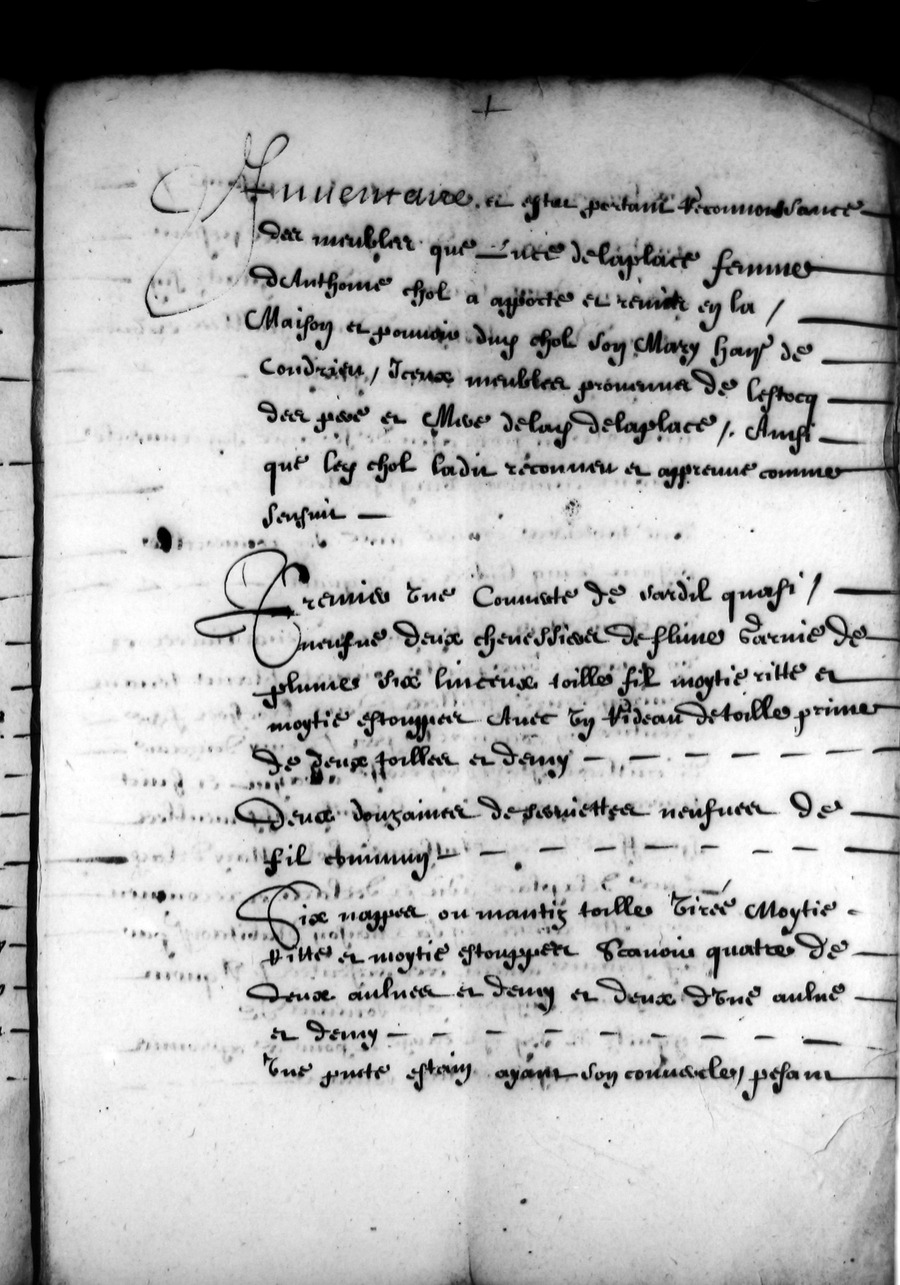 Inventaire et estat portant Reconnoissance
des meubles que Lucce delaplace femme
dAnthoine chol a apporté et remis en la /
Maison et pouvoir dud chol son Mary hant de
Condrieu / Iceux meubles provenus de lestocq
des pere et Mere delad delaplace /. Ainsi
que led chol ladit reconneu et appreuve comme
sensuit —
Premier une Couverte de sardil quasi /
neufve deux chevessieres de flime Garnie de
plume six linceux toille fil moytie ritte et
moytie estouppes Avec un Rideau de toille prime
de deux toilles et demy
Deux douzaines de serviettes neufves de
fil commung
Six nappes ou mantis toille Tirée Moytie
Ritte et moytie estouppes Scavoir quatre de
deux aulnes et demy et deux dune aulne
et demy
Une picte estain ayant son couvercle, pesant